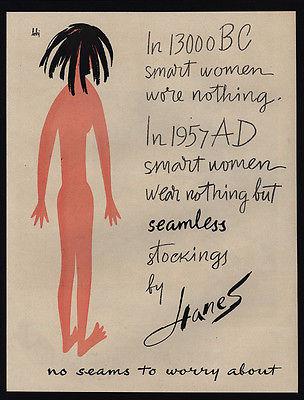 In 13000 BC
smart women
wore nothing.
In 1957 AD
smart women
wear nothing but
seamless
stockings
by
Hanes
no seams to worry about